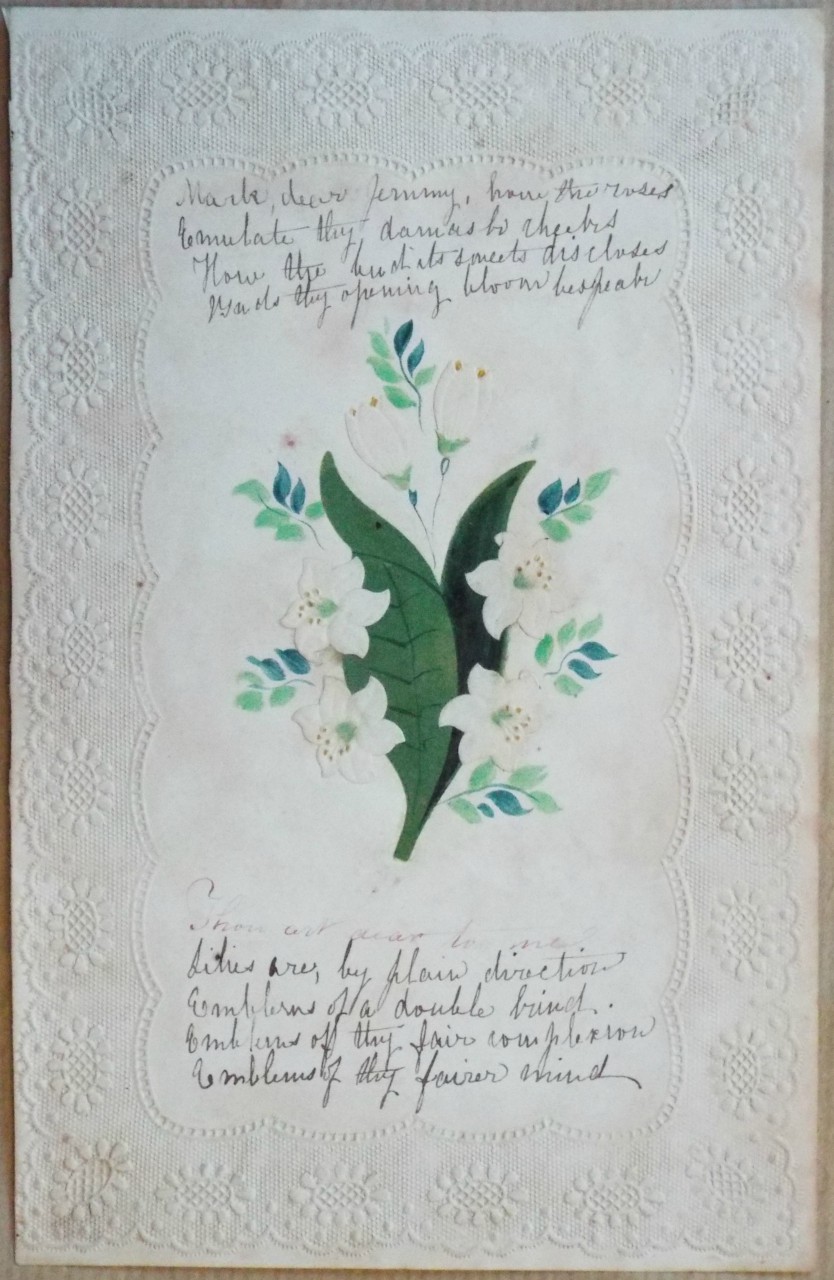 Mark, dear Jemmy, how the roses
Emulate thy damask cheeks
How the bud its sweets discloses
Buds thy opening bloom bespeak
Thou art dear to me
Lilies are, by plain direction
Emblems of a double kind.
Emblems off thy fair complexion
Emblems of thy fairer mind